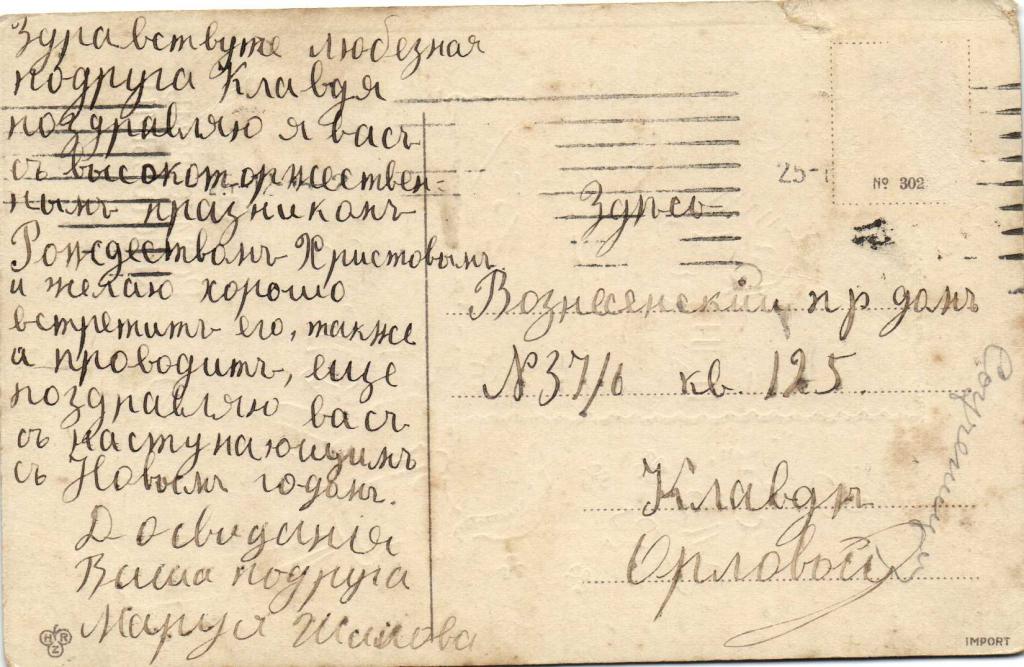 Здравствуте любезная
подруга Клавдя
поздравляю я васъ
съ высокоторжествен-
нымъ празникомъ
Рождествомъ Христовымъ
и желаю хорошо
встретитъ его, также
и проводитъ, еще
поздравляю васъ
съ наступающимъ
съ Новымъ годомъ.
Досвиданія
Ваша подруга
Маруся
HRZ
25-
№ 302
Здѣсь
Вознесенскій пр домъ
№37/6 кв. 125.
Клавдѣ
Орловой
IMPORT